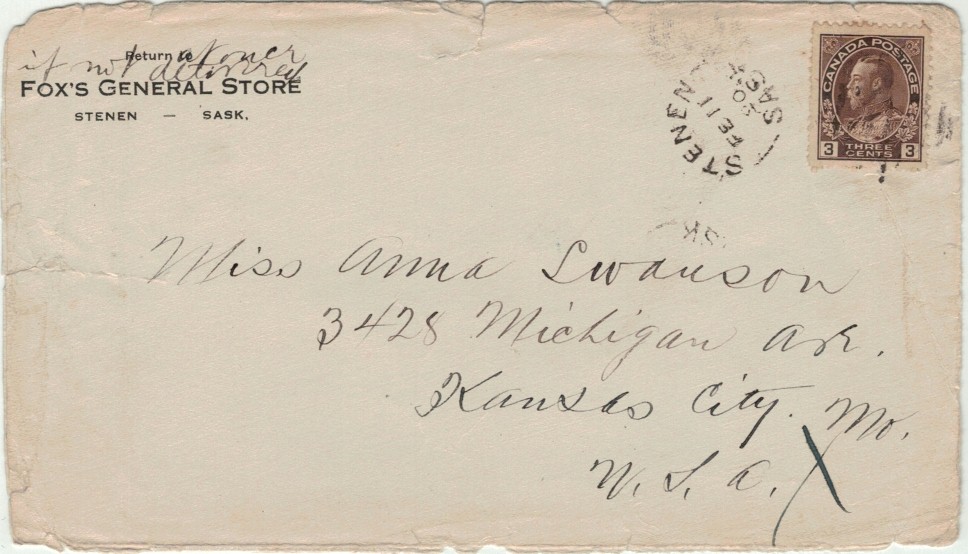 Return to at once
if not delivered
FOX'S GENERAL STORE
STENEN — SASK.
STENEN
SASK
FE 11
20
CANADA POSTAGE
3 THREE CENTS 3
SK
Miss Anna Swanson
3428 Michigan Av.
Kansas City. Mo.
U. S. A.